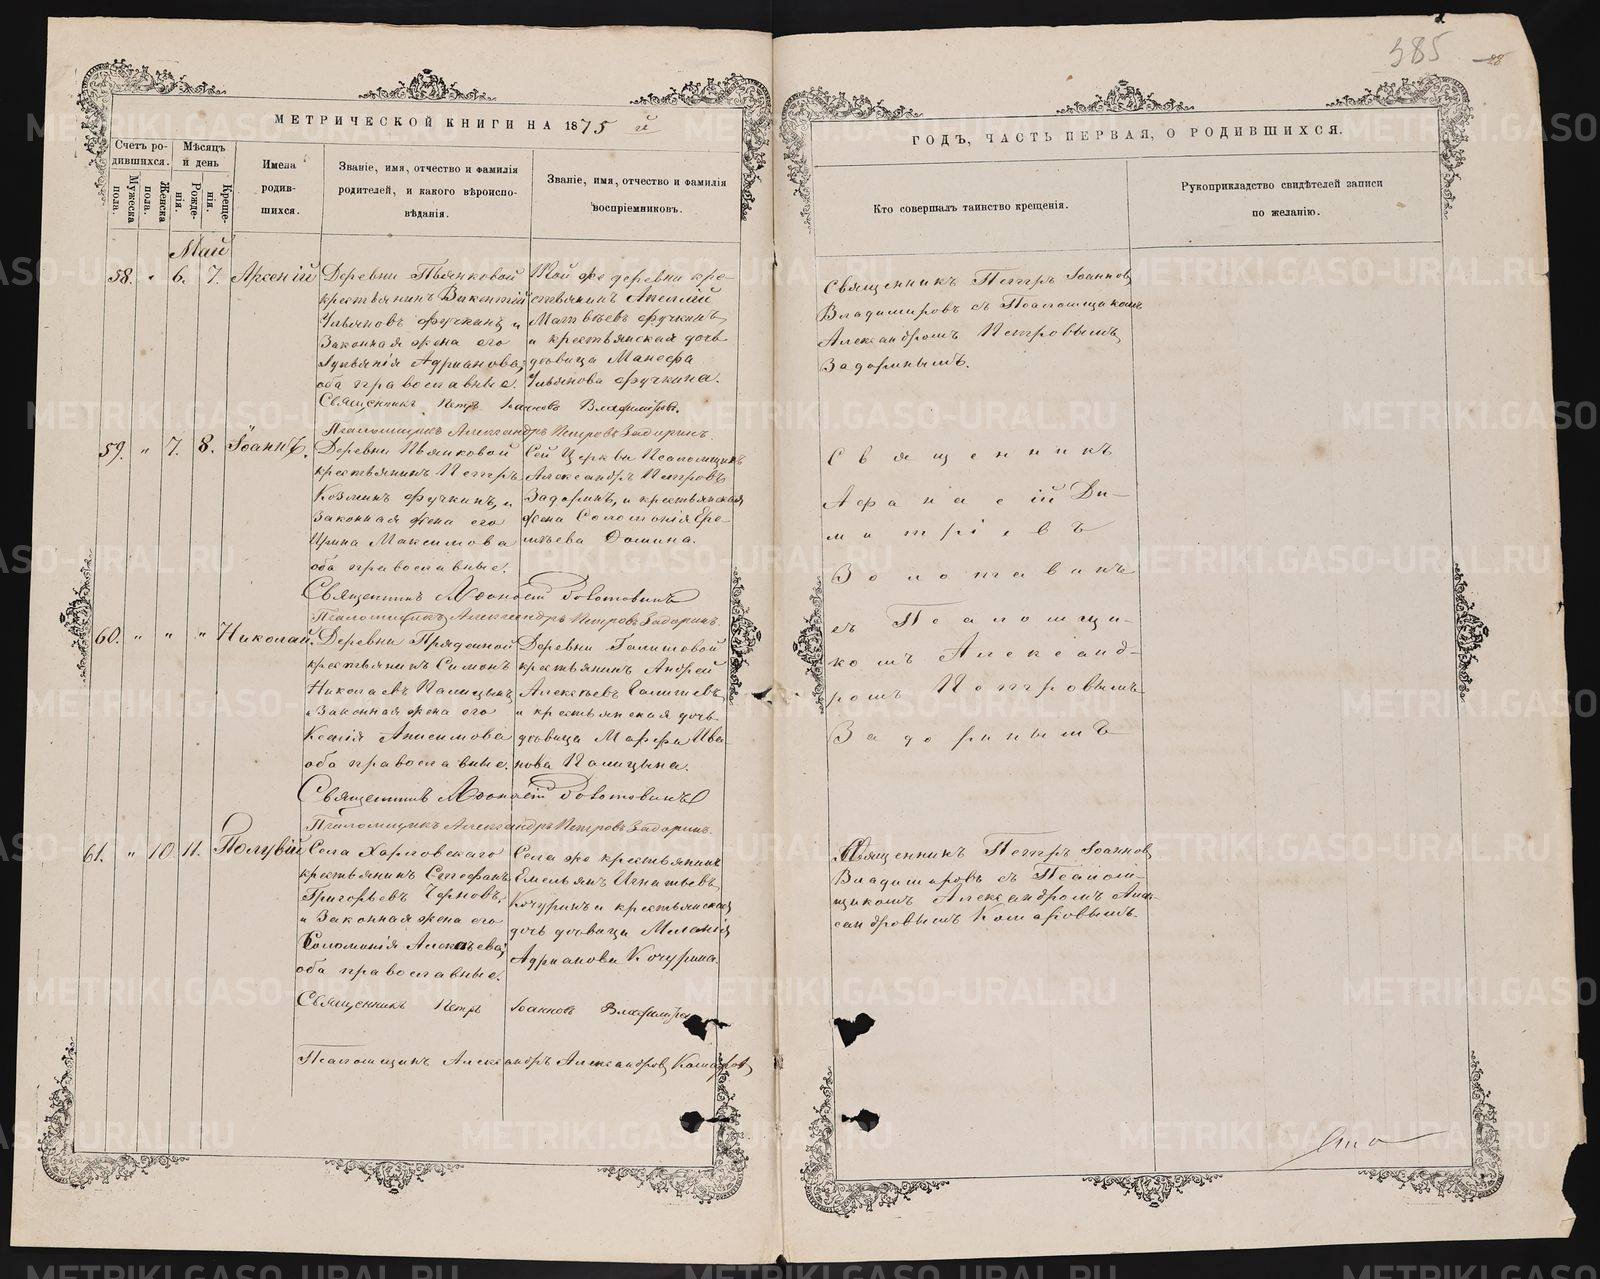 385
28
МЕТРИЧЕСКОЙ КНИГИ НА 1875 й
Счетъ ро-
дившихся.
Мужеска
пола.
Женска
пола.
Мѣсяцъ
и день
Рожде-
нія.
Креще-
нія.
Имена
родив-
шихся.
Званіе, имя, отчество и фамилія
родителей, и какого вѣроиспо-
вѣданія.
Званіе, имя, отчество и фамилія
воспріемниковъ.
Май
58. " 6. 7. Арсеній
Деревни Пьянковой
крестьянинъ Викентій
Ульяновъ Фучкинъ и
Законная жена его
Лукьянія Адрианова;
оба православные.
Той же деревни кре-
стьянинъ Апеллій
Матвѣевъ Фучкинъ,
и крестьянская дочь
дѣвица Манефа
Ульянова Фучкина.
Священникъ Петръ Іоанновъ Владиміровъ.
Псаломщикъ Александръ Петровъ Задоринъ.
59. " 7. 8. Іоаннъ.
Деревни Пьянковой
крестьянинъ Петръ
Козминъ Фучкинъ, и
Законная жена его
Ирина Максимова
оба православные.
Сей Церкви Псаломщикъ
Александръ Петровъ
Задоринъ, и крестьянская
жена Соломонія Ере-
мѣева Фомина.
Священникъ Афанасій Золотавинъ
Псаломщикъ Александръ Петровъ Задоринъ.
60. " " " Николай.
Деревни Прядеиной
крестьянинъ Симонъ
Николаевъ Палицынъ
и Законная жена его
Ксенія Анисимова
оба православные.
Деревни Голишовой
крестьянинъ Андрей
Алексѣевъ Голишевъ
и крестьянская дочь
дѣвица Марфа Ива-
нова Палицына.
Священникъ Афанасій Золотавинъ
Псаломщикъ Александръ Петровъ Задоринъ.
61. " 10. 11. Полувій
Села Харловскаго
крестьянинъ Стефанъ
Григорьевъ Черновъ,
и Законная жена его
Соломонія Алексѣева;
оба православные.
Села же крестьянинъ
Емельянъ Игнатьевъ
Кочуринъ и крестьянская
дочь дѣвица Меланія
Адрианова Кочурина.
Священникъ Петръ Іоанновъ Владиміровъ
Псаломщикъ Александръ Александровъ Комаровъ
ГОДЪ, ЧАСТЬ ПЕРВАЯ, О РОДИВШИХСЯ.
Кто совершалъ таинство крещенія.
Рукоприкладство свидѣтелей записи
по желанію.
Священникъ Петръ Іоанновъ
Владиміровъ съ Псаломщикомъ
Александромъ Петровымъ
Задоринымъ.
Священникъ
Афанасій Ди-
митріевъ
Золотавинъ
съ Псаломщи-
комъ Александ-
ромъ Петровымъ
Задоринымъ
Священникъ Петръ Іоанновъ
Владиміровъ съ Псалом-
щикомъ Александромъ Алек-
сандровымъ Комаровымъ.
METRIKI.GASO-URAL.RU